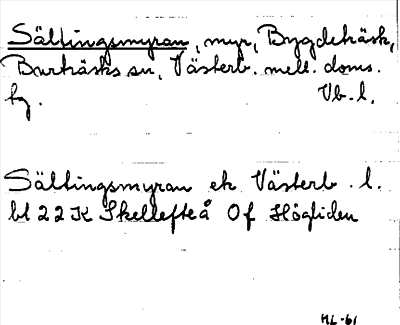 Sältingsmyran, myr, Bygdeträsk,
Burträsks sn, Västerb. mell. doms.
fg. Vb. l.
Sältingsmyran ek Västerb. l.
bl 22 K Skellefteå Of Högliden
ML -61